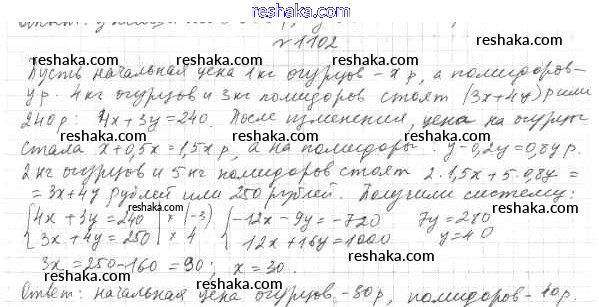 reshaka.com
№1102
reshaka.com reshaka.com reshaka.com
Пусть начальная цена 1 кг огурцов – x р, а помидоров –
y р. 4 кг огурцов и 3 кг помидоров стоят (3x+4y) р или
240 р: 4x+3y=240. После изменения, цена на огурцы
reshaka.com reshaka.com reshaka.com
стала x+0,5x=1,5x р, а на помидоры: y-0,2y=0,8y р.
2 кг огурцов и 5 кг помидоров стоят 2·1,5x+5·0,8y =
= 3x+4y рублей или 250 рублей. Получим систему:
reshaka.com reshaka.com reshaka.com
{4x+3y=240 |× (-3) {-12x-9y=-720 7y=280
{3x+4y=250 |× 4 {12x+16y=1000 y=40
3x=250-160=90; x=30.
reshaka.com reshaka.com reshaka.com
Ответ: начальная цена огурцов -30р, помидоров -40р.
reshaka.com